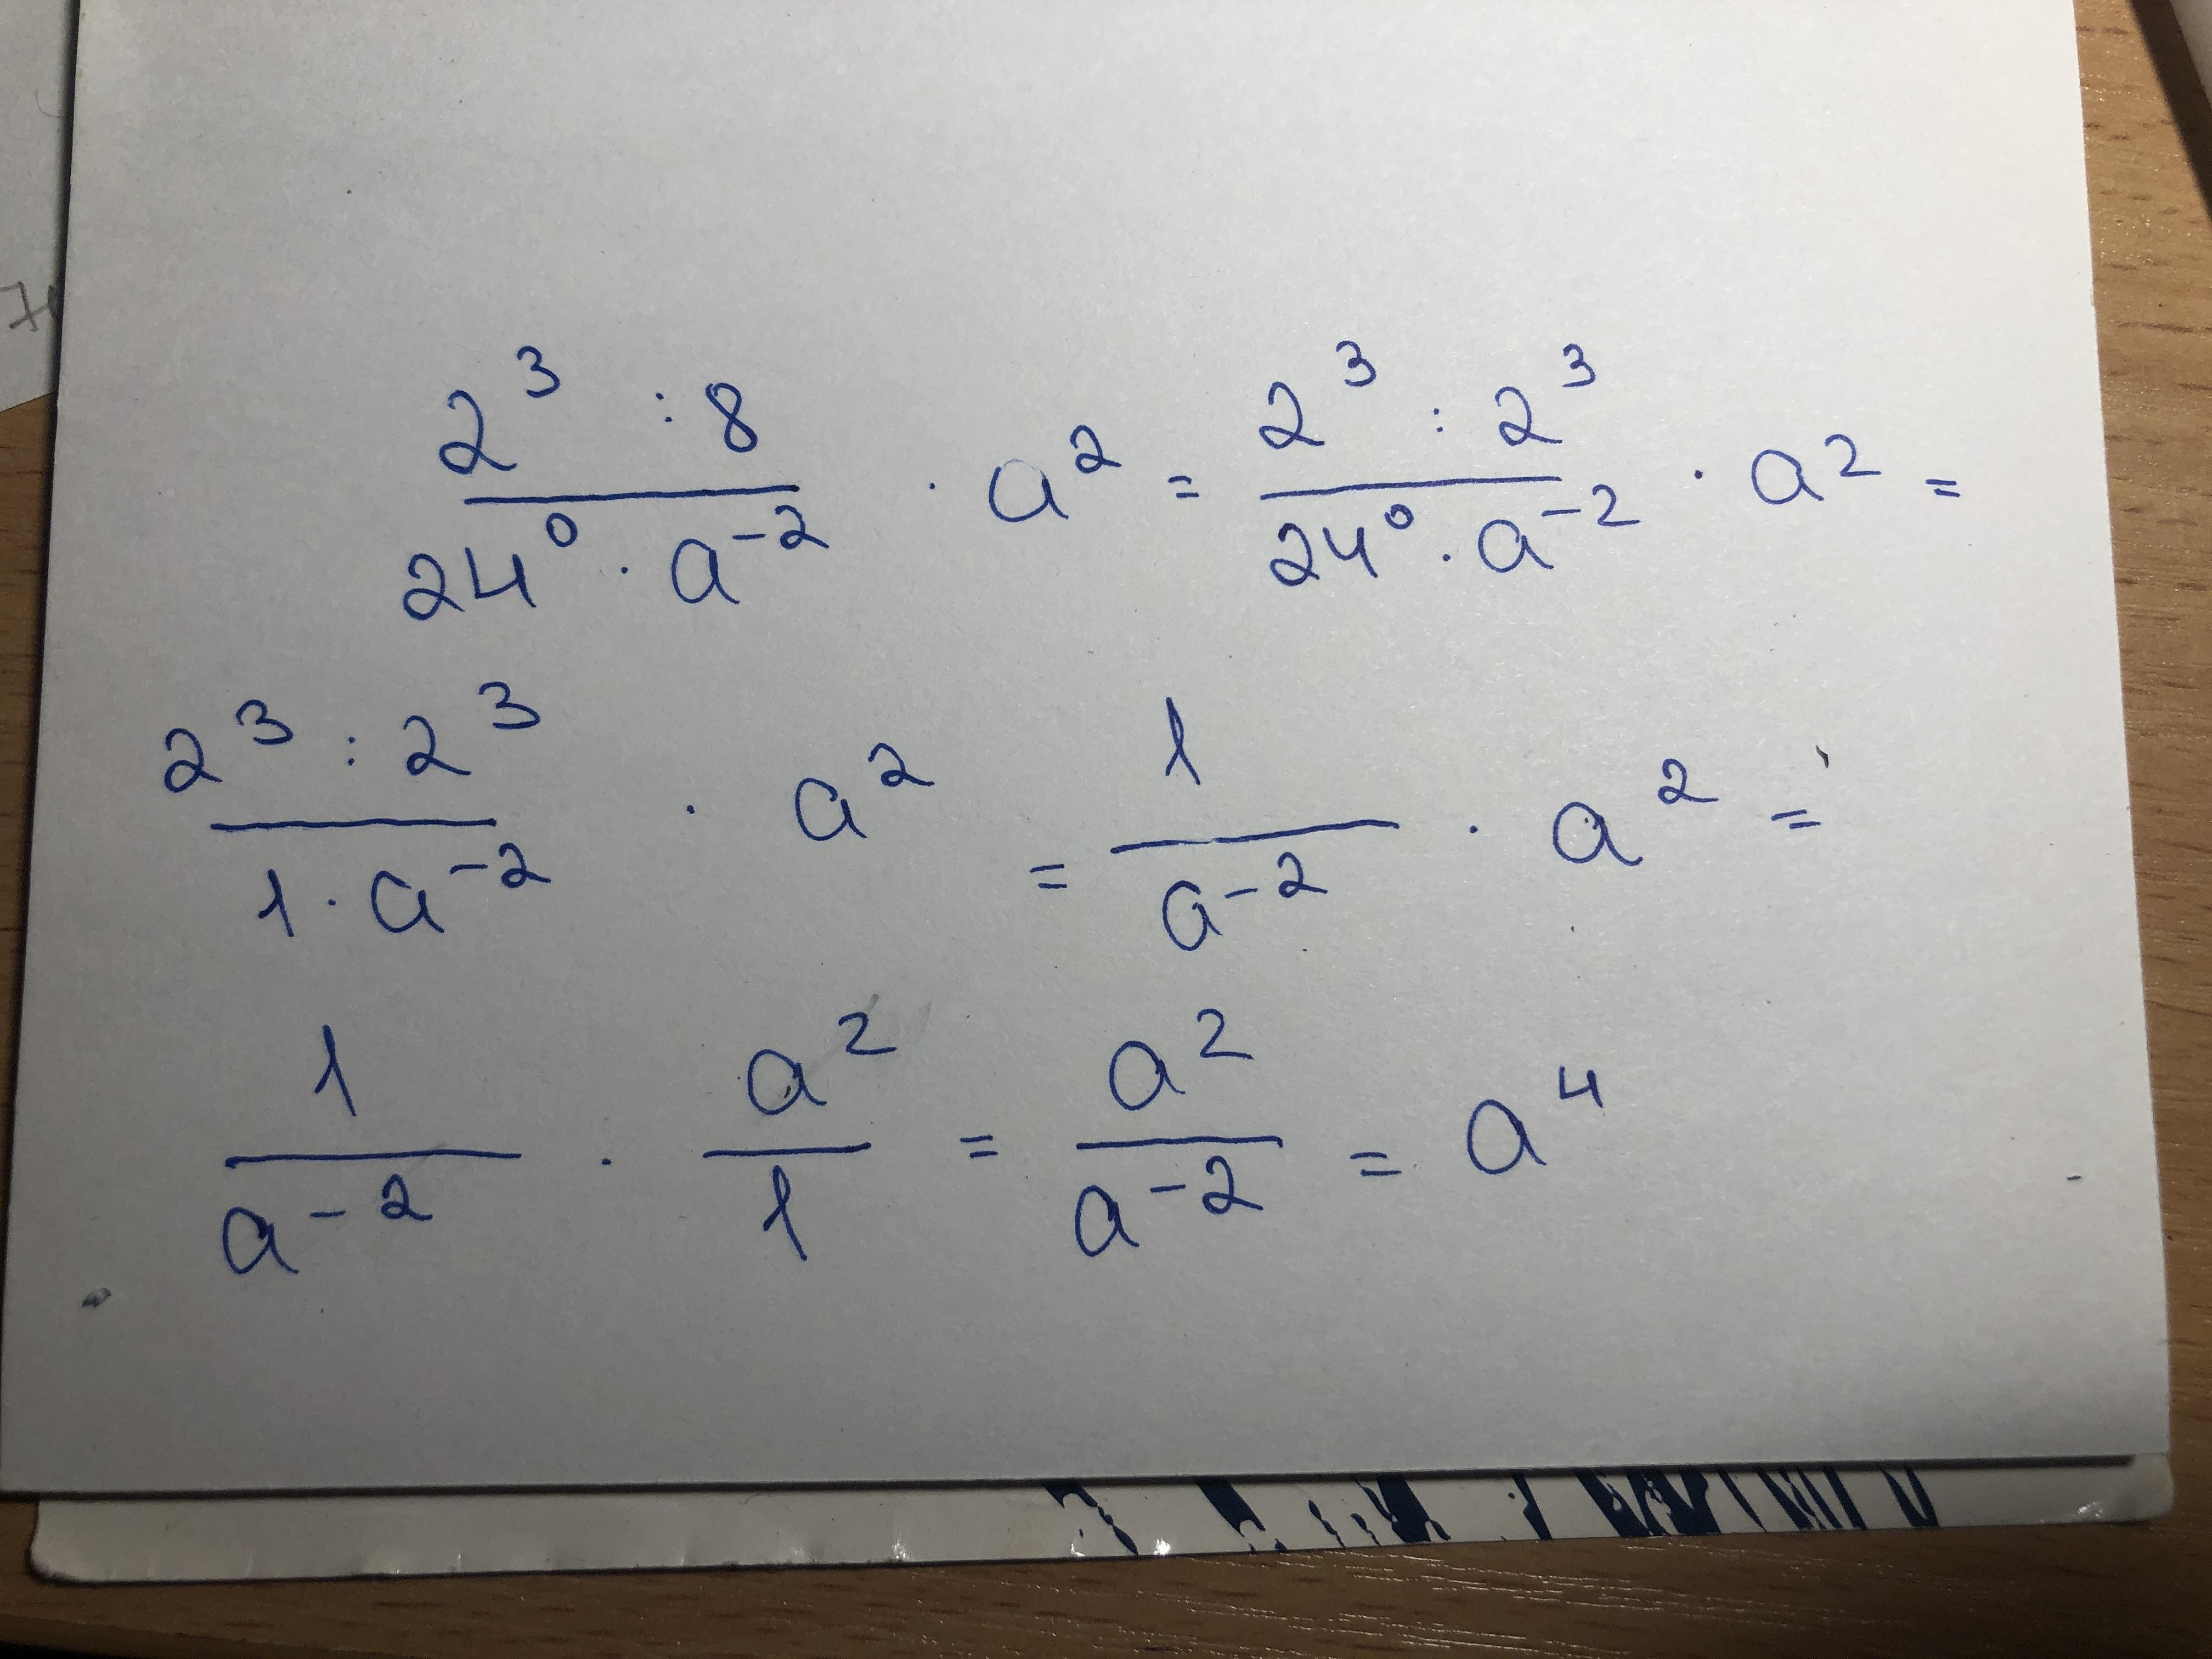 2³ : 8 / 24⁰ · a⁻² · a² = 2³ : 2³ / 24⁰ · a⁻² · a² =
2³ : 2³ / 1 · a⁻² · a² = 1 / a⁻² · a² =
1 / a⁻² · a² / 1 = a² / a⁻² = a⁴